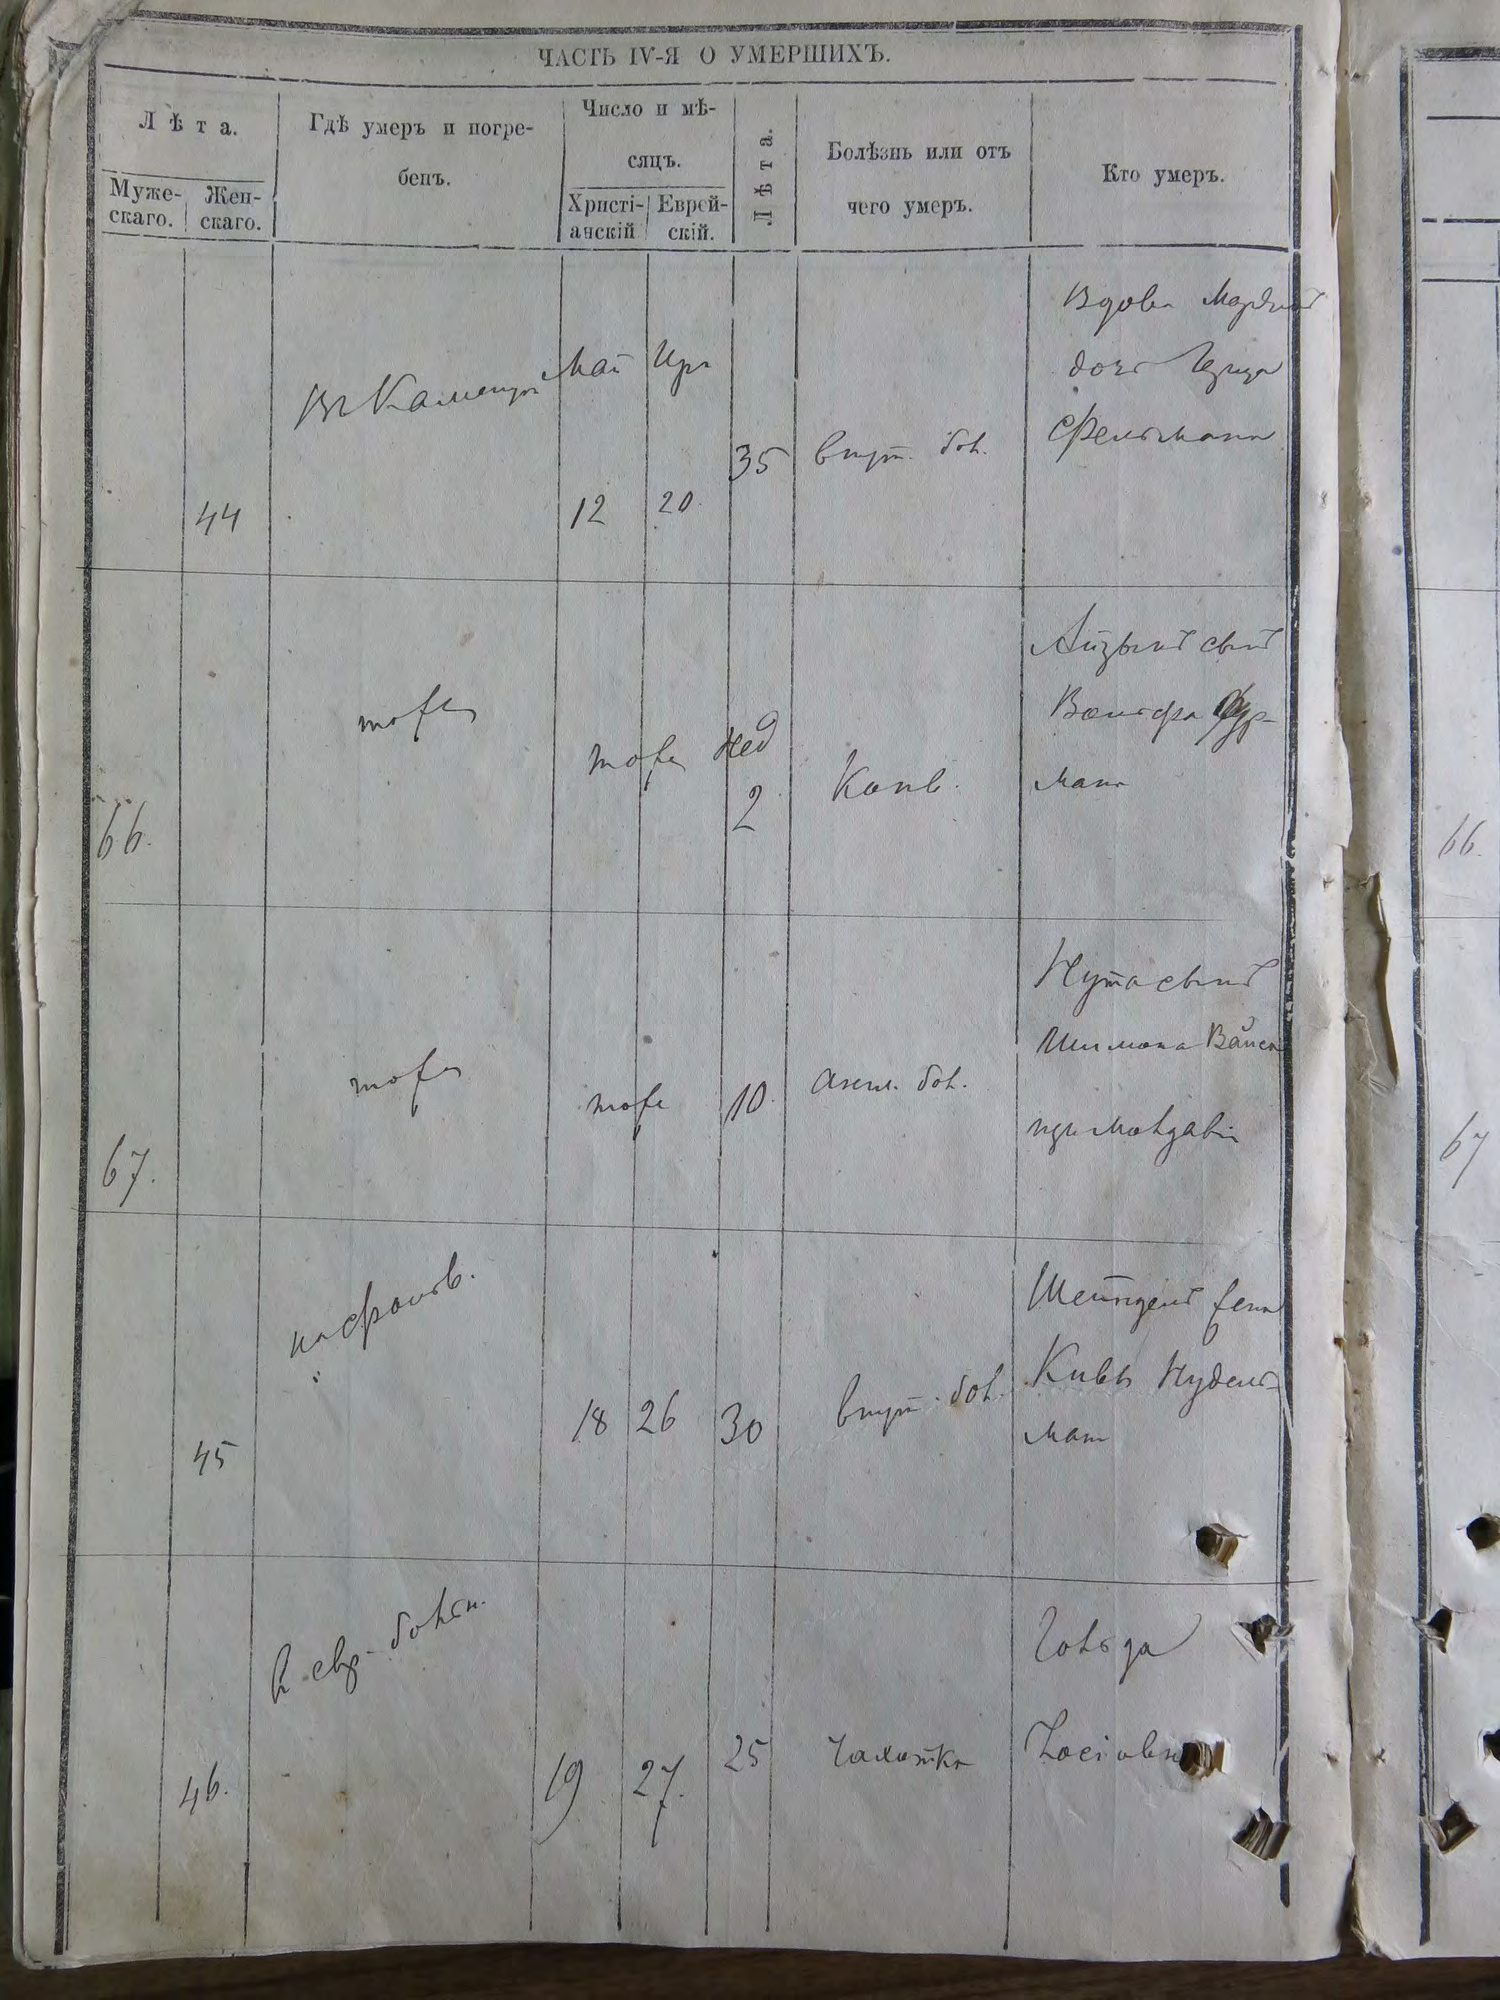 ЧАСТЬ IV-Я О УМЕРШИХЪ.
Лѣта.
Муже-
скаго.
Жен-
скаго.
Гдѣ умеръ и погре-
бенъ.
Число и мѣ-
сяцъ.
Христі-
анскій
Еврей-
скій.
Лѣта.
Болѣзнь или отъ
чего умеръ.
Кто умеръ.
44
Въ Каменцѣ
Май
12
Ияр
20
35
внут. бол.
Вдова
дочь
Фельдмана
66.
тоже
тоже
Нед
2
Конв.
Айзыкъ сынъ
Вольфа Фур-
ман
67.
тоже
тоже
10
англ. бол.
Нута сынъ
Шимона Вайсъ
Молдавіи
45
на Фольв.
18
26
30
внут. бол.
Шейндель жена
Кивы Нудель-
ман
46.
В евр. больн.
19
27.
25
Чахотка
Гольда
66.
67